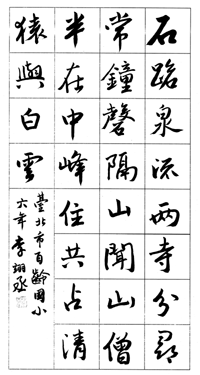 石路泉流兩寺分尋
常鐘磬隔山聞山僧
半在中峰住共占清
猿與白雲
臺北市百齡國小
六年 李翊丞